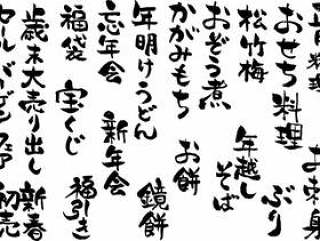 おせち料理
お刺身
ぶり
おぞう煮
年越しそば
松竹梅
かがみもち
お餅
鏡餅
年明けうどん
忘年会
新年会
福袋
宝くじ
福引き
歳末大売り出し
新春
セール
バーゲン
フェア
初売